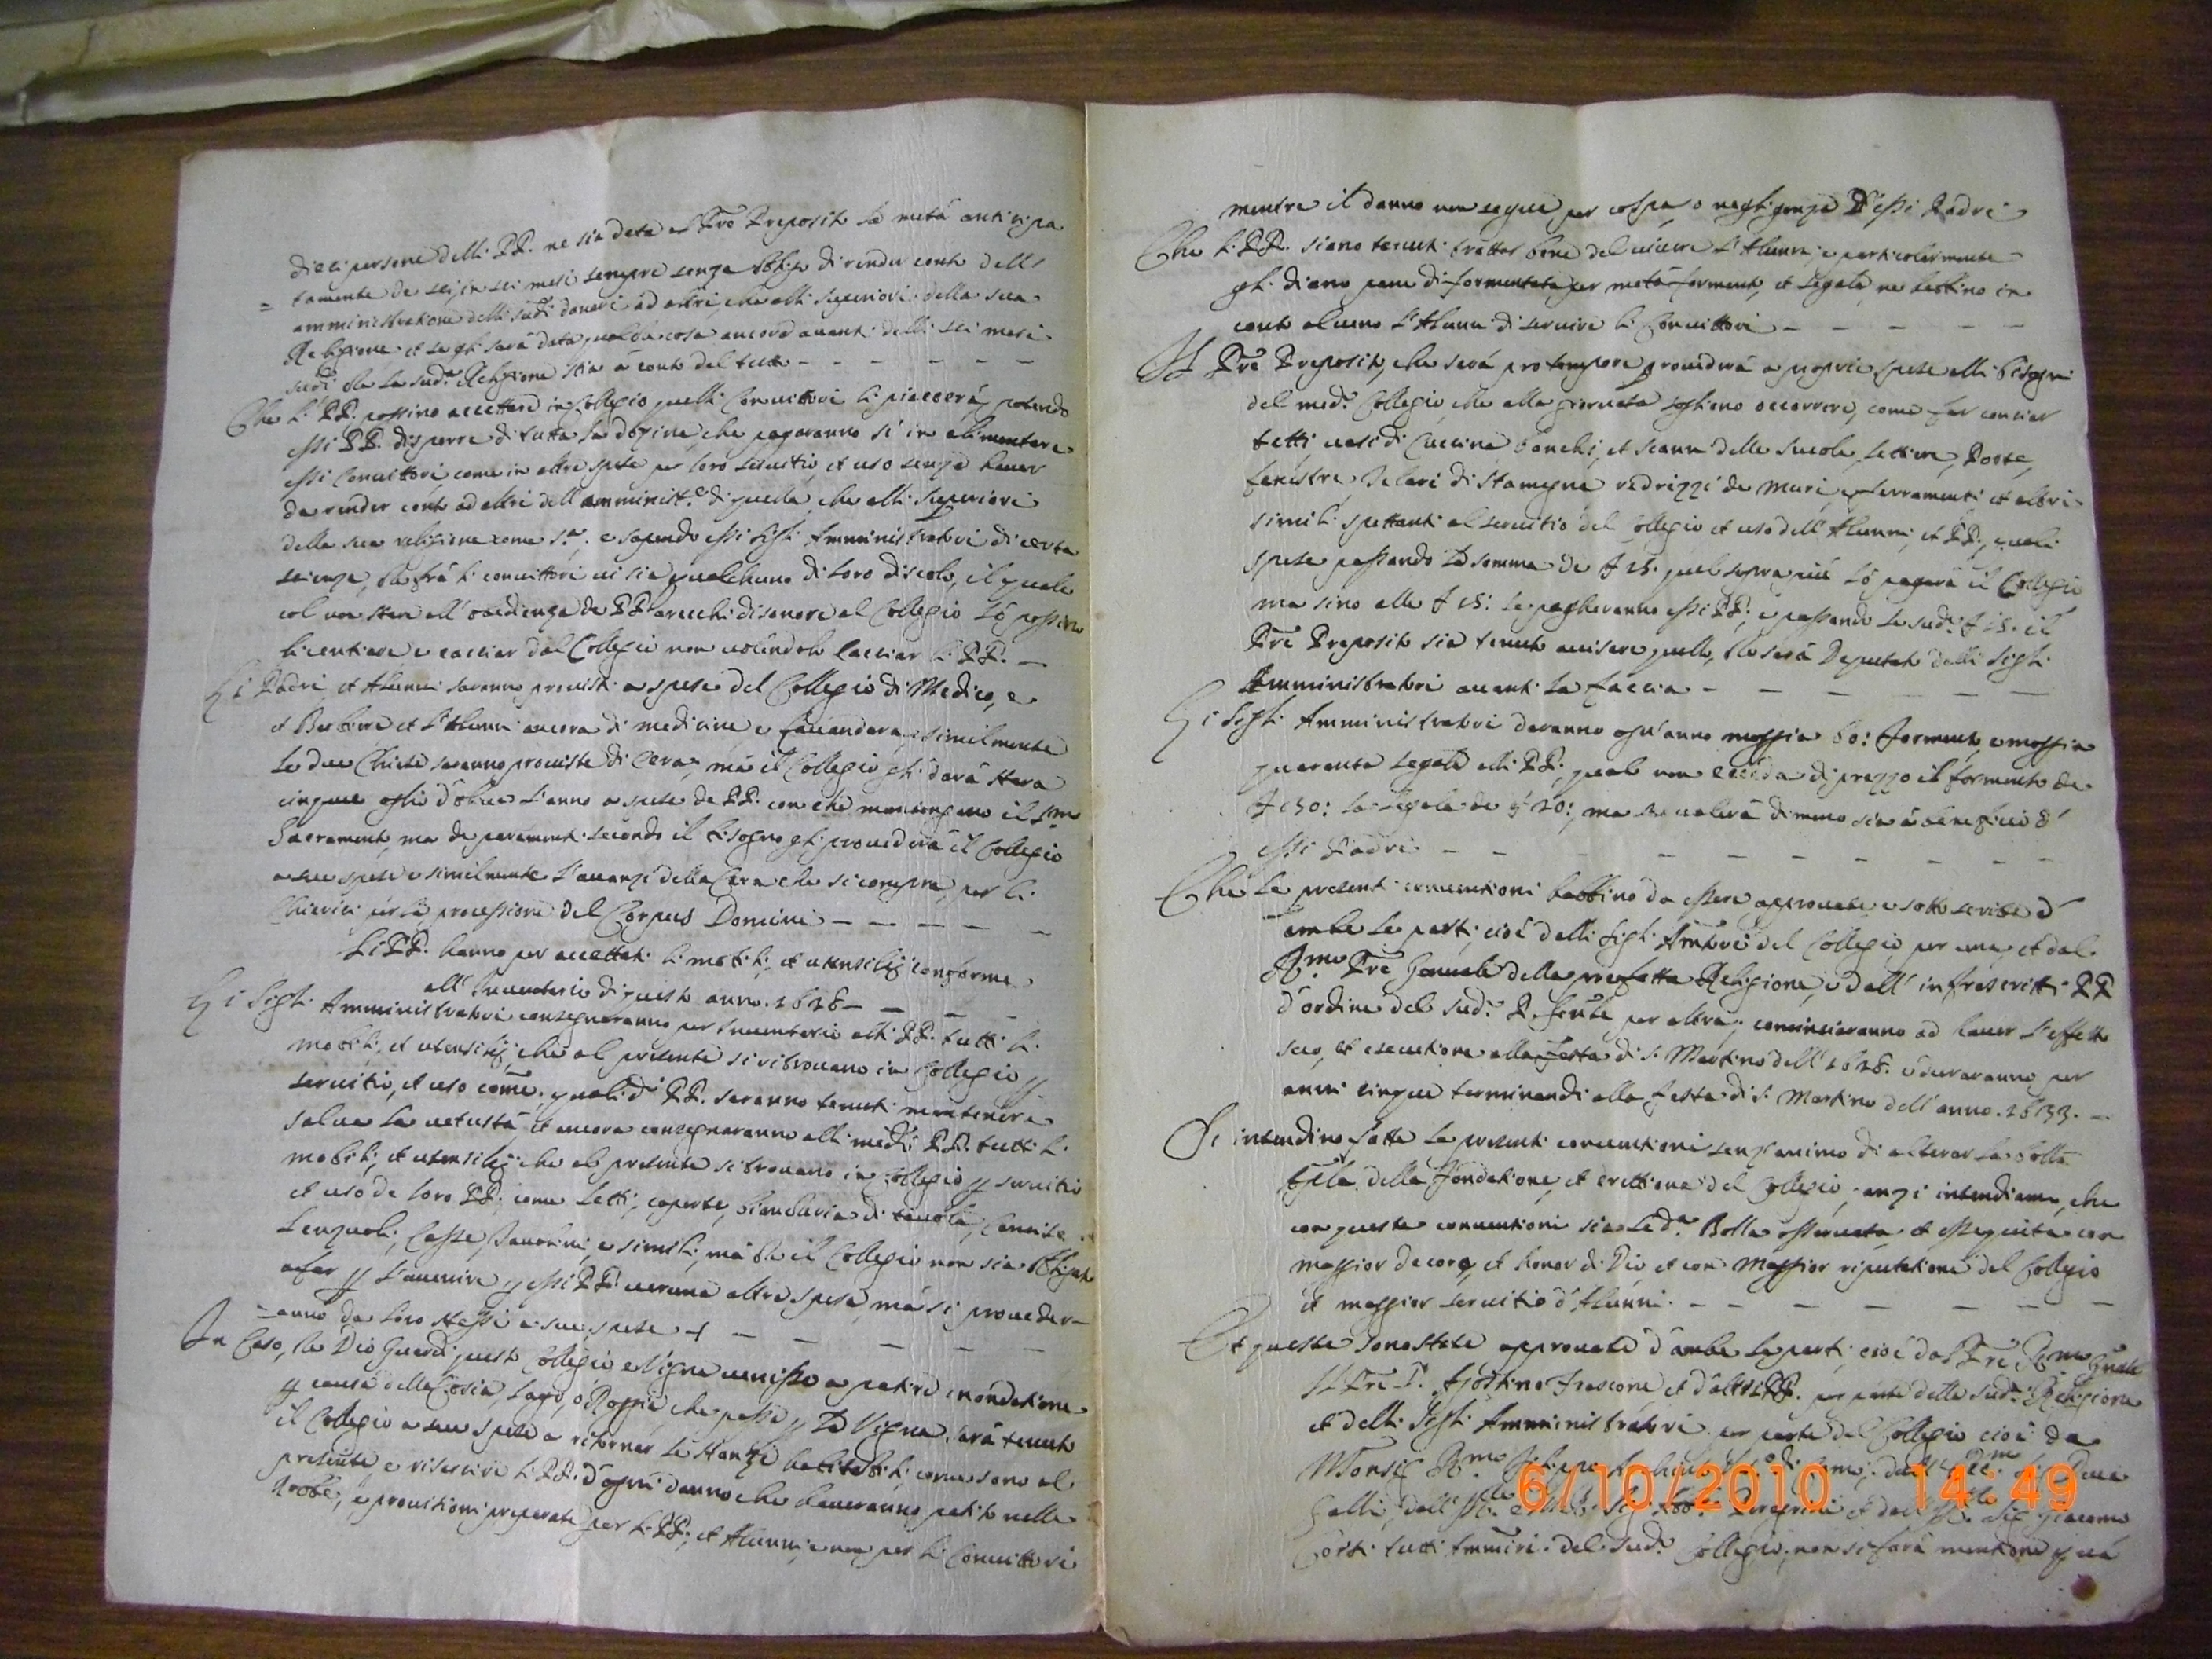 dieci persone delli PP. ne sia data al Pre Preposito la metà anticipa
= tamente de sei in sei mesi sempre senza obligo di render conto dell'
amministratione delli sudi danari ad altri, che alli superiori della sua
Religione et se gli sarà data qualche cosa ancora avanti delli sei mesi
la sud.a Religione stia à conto del tutto - - - - - -
Che li PP. possino accettare in Collegio quelli Convittori li piacerà, potendo
essi PP. disporre di tutta la dozina, che pagaranno sì in alimentare
essi Convittori, come in altre spese per loro servitio, et uso senza haver
da render conto ad altri dell'amminist.e di quella, che alli superiori
della sua religione come s.a, e sapendo essi Sigri Amministratori di certa
scienza, che frà li convittori vi sia qualchuno di loro discolo, il quale
col non stare all'obedienza de PP. arecchi disonore al Collegio lo possino
licentiare e cacciar dal Collegio non volendolo cacciar li PP. -
Li Padri et Alunni saranno provisti a spese del Collegio di Medico, e
et Barbiere et l'Alunni ancora di medicine e lavandara, e similmente
le due Chiese saranno proviste di Cera, mà il Collegio gli darà stara
cinque oglio d'oliva l'anno a spese de PP. con che mantengano il S.mo
Sacramento, ma de paramenti secondo il bisogno gli provederà il Collegio
a sue spese e similmente l'avanzo della Cera che si compra per li
Chierici per la processione del Corpus Domini - - - - -
Li PP. hanno per accettati li mobili, et utensilij conforme
all'Inventario di questo anno. 1628 - - - -
Li Sigri Amministratori consegnaranno per Inventario alli PP. tutti li
mobili, et utensilij, che al presente si ritrovano in Collegio p
servitio, et uso come. quali di PP. saranno tenuti mantenere
salva la vetustà, et ancora consegnaranno alli medi PP. tutti li
mobili, et utensilij che al presente si trovano in Collegio p servitio
et uso de loro PP. come letti, coperte, biancharia di tavola, Camise
Lenzuoli, Casse, Tavolini, e simili, mà che il Collegio non sia obligato
a far p l'avenire p essi PP. veruna altra spesa, mà si proveder-
= anno da loro stessi a sue spese - - - - -
In Caso, che Dio Guardi questo Collegio e Vigna venisse a patire inondatione
p causa della Cosia, Lago, ò Roggia che passa p la Vigna, sarà tenuto
il Collegio a sue spese a ritornar le stanze habitabili, come sono al
presente e riservire li PP. d'ogni danno che haveranno patito nelle
Robbe, e provitioni preparate per li PP. et Alunni, e non per li Convittori
mentre il danno non segua per colpa, o negligenza d'essi Padri
Che li PP. siano tenuti trattar bene del vivere l'Alunni, e particolarmente
gli diano pane di formentata per metà formento, et segale, ne habbino in
conto alcuno l'Alunni di servire li Convittori - - - - - -
Il Pre Preposito, che sarà pro tempore provederà a proprie spese alli bisogni
del med.o Collegio che alla giornata sogliono occorrere, come far conciar
tetti, vasi di Cucina banchi, et scanni delle Scuole, Lettiere, Porte,
fenestre, Telari di stamegna redrizzi de muri, e ferramenti et altri
simili spettanti al servitio del Collegio et uso dell'Alunni, et PP., quali
spese passando la somma de £ 25. quel sopra più lo pagarà il Collegio
ma sino alle £ 25: le pagheranno essi PP., e passando le sud.e £ 25. il
Pre Preposito sia tenuto avisare quello, che sarà Deputato dalli Sigri
Amministratori avanti la faccia - - - - - -
Li Sigri Amministratori daranno ogn'anno moggia 60: formento, e moggia
quaranta segale alli PP., quale non ecceda di prezzo il formento de
£ 30: la segale de £ 20:, ma se valerà di meno sia à beneficio d'
essi Padri - - - - - - - - - - -
Che le presenti conventioni habbino da essere approvate e sottoscritte d'
ambe le parti, cioè dalli Sigri Amtori del Collegio per una, et dal
R.mo Pre Generale della prefatta Religione, e dall'infrascritti PP
d'ordine del sud.o P. Gnale per altra, cominciaranno ad haver l'effetto
suo, et esecutione alla festa di S. Martino dell'1628. e duraranno per
anni cinque terminandi alla festa di S. Martino dell'anno. 1633. -
Si intendino fatte le presenti conventioni senz'animo di alterar la bolla
della fondatione, et erettione del Collegio, anzi intendiamo, che
con queste conventioni sia la d.a Bolla osservata et esseguita con
maggior decoro, et honor di Dio et con maggior riputatione del Collegio
et maggior servitio d'Alunni. - - - - - - - -
Et queste sono state approvate d'ambe le parti, cioè dal Pre R.mo Gnale
Il Pre D. Agostino Froscone et d'altri PP. per parte della sud.a Religione
et delli Sigri Amministratori per parte del Collegio cioè da
Monsig.r R.mo
Galli, dall' et dall' Sig. Giacomo
Corti tutti Ammri. del sud.o Collegio, non si farà mentione p quà
6/10/2010 14:49